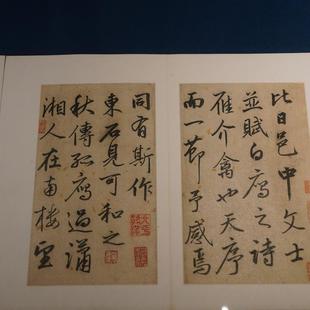 比日邑中文士
並賦白雁之诗
雁介禽也天序
而一節予感焉
同有斯作
東石見可和之
秋傳孤雁過瀟
湘人在南楼望